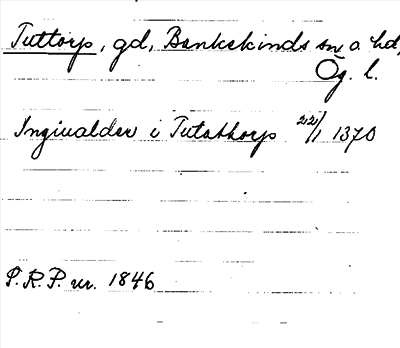 Tuttorp, gd, Bankekinds sn o. hd,
Ög. l.
Ingiualder i Tutathorp 22/1 1370
P.R.P. nr. 1846